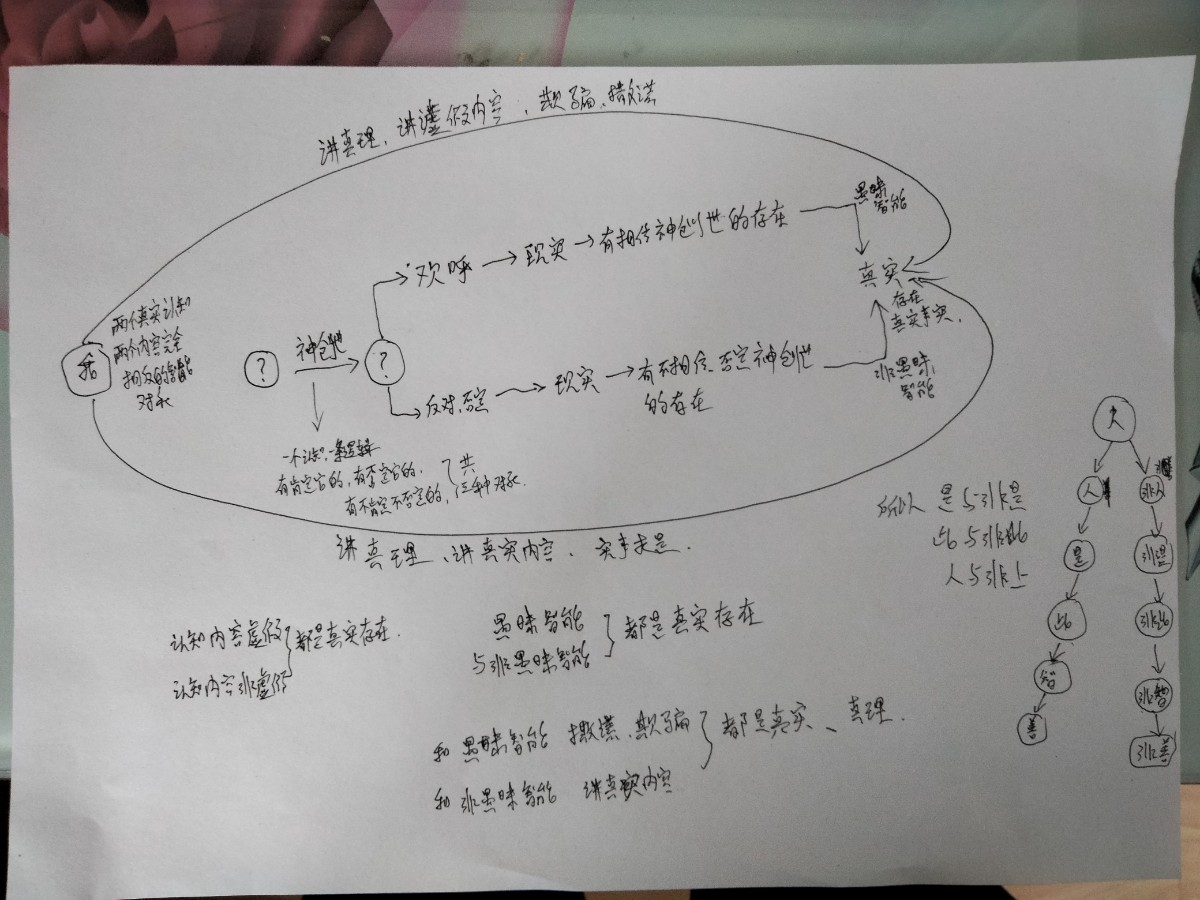 讲真理、讲虚假内容、欺骗、撒谎
愚昧
智能
欢呼 → 现实 → 有相信神创世的存在
真实
存在
真实事实.
两个真实认知
两个内容完全
相反的智能
对永
我
?
神创世
?
反对、否定 → 现实 → 有不相信、否定神创世
的存在
非愚昧
智能
一个认知、
有肯定它的, 有否定它的.
有不肯定不否定的,
共
三种
讲真理、讲真实内容、实事求是.
人
非人
是
非是
比
非比
智
非智
善
非善
所以 是与非是
比与非比
人与非人
认知内容虚假
认知内容非虚假
都是真实存在.
愚昧智能
与非愚昧智能
都是真实存在
和愚昧智能 撒谎、欺骗
和非愚昧智能 讲真实内容
都是真实、真理.